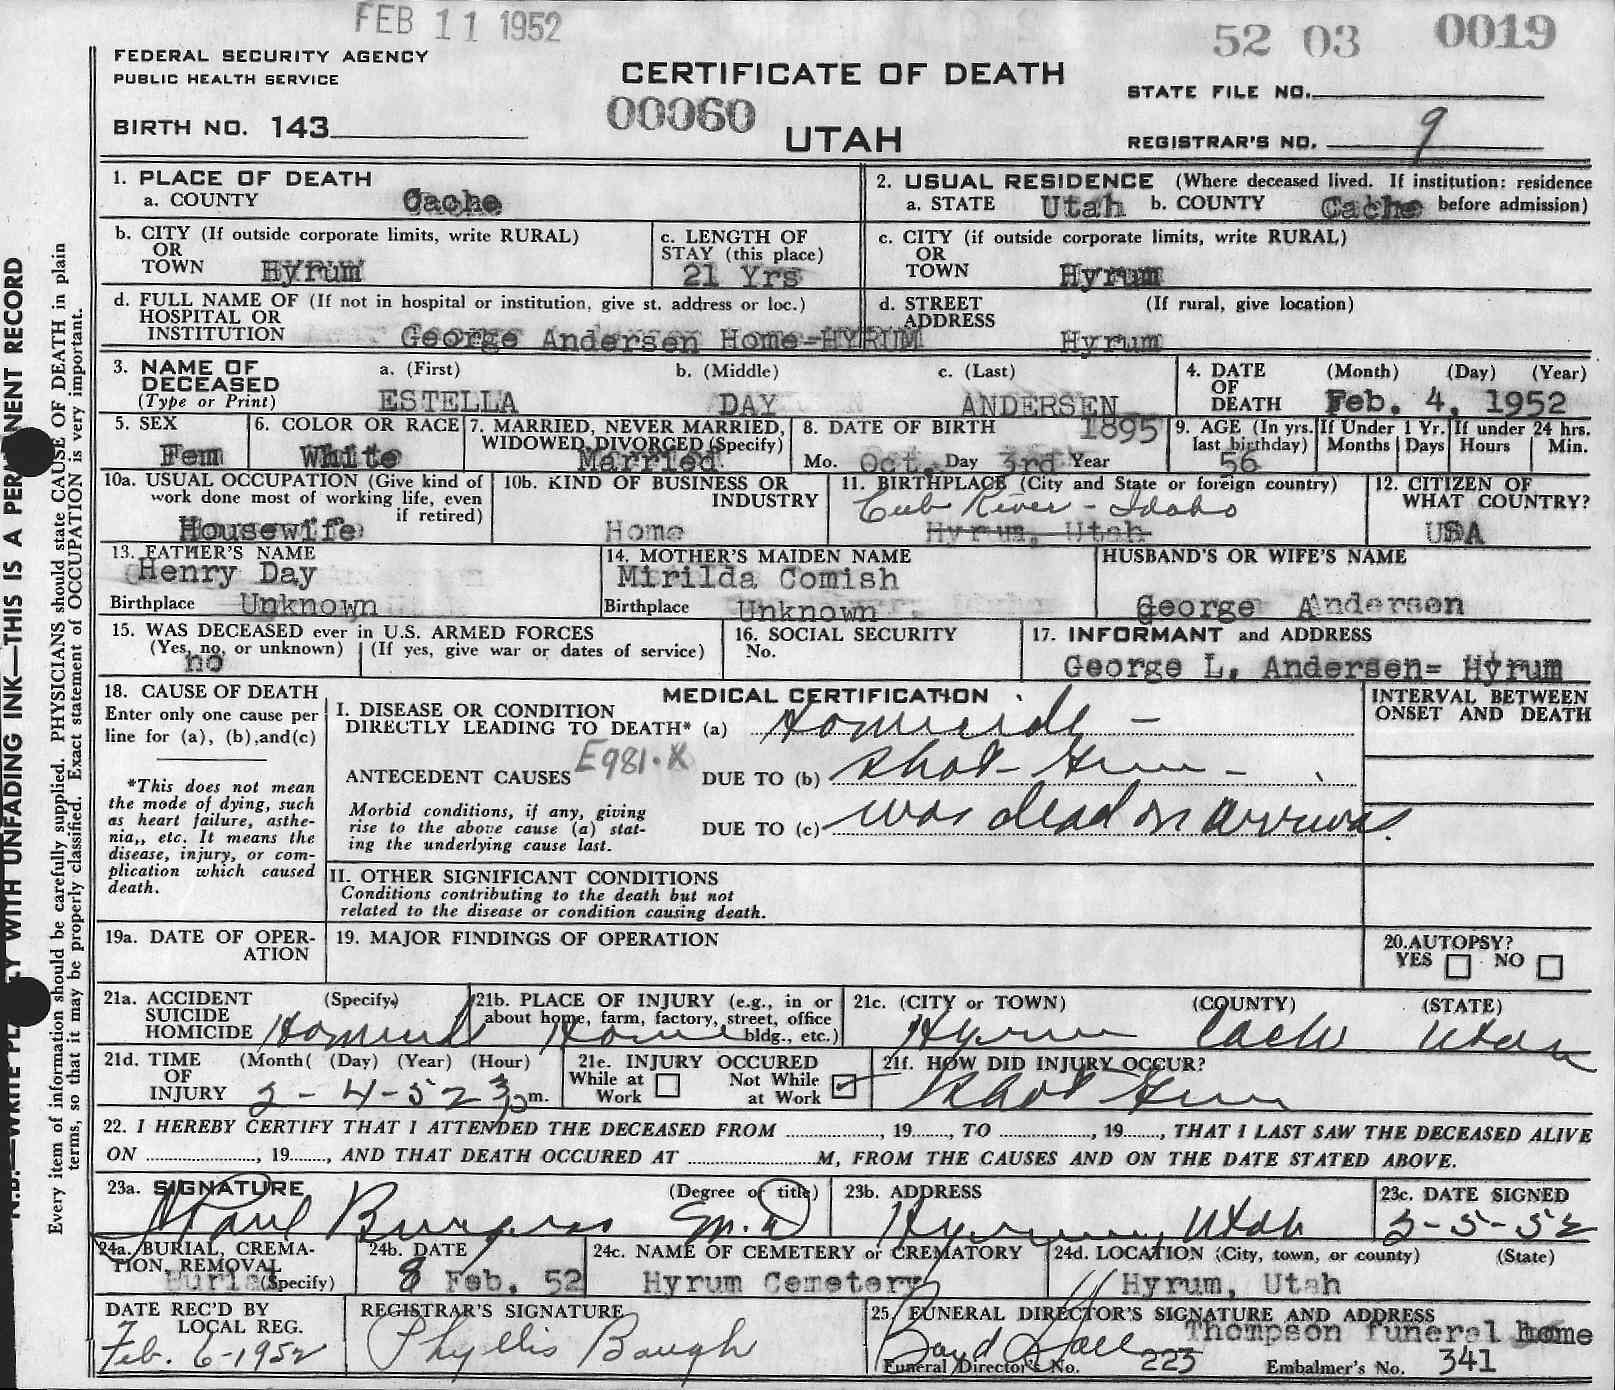 FEB 11 1952
52 03 0019
FEDERAL SECURITY AGENCY
PUBLIC HEALTH SERVICE
CERTIFICATE OF DEATH
STATE FILE NO.
BIRTH NO. 143
00060
UTAH
REGISTRAR'S NO. 9
N.B.—WRITE PLAINLY WITH UNFADING INK—THIS IS A PERMANENT RECORD
Every item of information should be carefully supplied. PHYSICIANS should state CAUSE OF DEATH in plain
terms, so that it may be properly classified. Exact statement of OCCUPATION is very important.
1. PLACE OF DEATH
a. COUNTY Cache
2. USUAL RESIDENCE (Where deceased lived. If institution: residence
a. STATE Utah b. COUNTY Cache before admission)
b. CITY (If outside corporate limits, write RURAL)
OR
TOWN Hyrum
c. LENGTH OF
STAY (this place)
21 Yrs
c. CITY (if outside corporate limits, write RURAL)
OR
TOWN Hyrum
d. FULL NAME OF (If not in hospital or institution, give st. address or loc.)
HOSPITAL OR
INSTITUTION George Andersen Home-HYRUM
d. STREET (If rural, give location)
ADDRESS
Hyrum
3. NAME OF a. (First) b. (Middle) c. (Last)
DECEASED
(Type or Print) ESTELLA DAY ANDERSEN
4. DATE (Month) (Day) (Year)
OF
DEATH Feb. 4, 1952
5. SEX
Fem
6. COLOR OR RACE
White
7. MARRIED, NEVER MARRIED,
WIDOWED, DIVORCED (Specify)
Married
8. DATE OF BIRTH 1895
Mo. Oct. Day 3rd Year
9. AGE (In yrs.
last birthday)
56
If Under 1 Yr.
Months Days
If under 24 hrs.
Hours Min.
10a. USUAL OCCUPATION (Give kind of
work done most of working life, even
if retired)
Housewife
10b. KIND OF BUSINESS OR
INDUSTRY
Home
11. BIRTHPLACE (City and State or foreign country)
Cub River - Idaho
Hyrum, Utah
12. CITIZEN OF
WHAT COUNTRY?
USA
13. FATHER'S NAME
Henry Day
Birthplace Unknown
14. MOTHER'S MAIDEN NAME
Mirilda Comish
Birthplace Unknown
HUSBAND'S OR WIFE'S NAME
George Andersen
15. WAS DECEASED ever in U.S. ARMED FORCES
(Yes, no, or unknown) (If yes, give war or dates of service)
no
16. SOCIAL SECURITY
No.
17. INFORMANT and ADDRESS
George L. Andersen- Hyrum
18. CAUSE OF DEATH
Enter only one cause per
line for (a), (b), and(c)
*This does not mean
the mode of dying, such
as heart failure, asthe-
nia,, etc. It means the
disease, injury, or com-
plication which caused
death.
MEDICAL CERTIFICATION
INTERVAL BETWEEN
ONSET AND DEATH
I. DISEASE OR CONDITION
DIRECTLY LEADING TO DEATH* (a) Homicide -
E981.X
ANTECEDENT CAUSES DUE TO (b) Shot Gun -
Morbid conditions, if any, giving
rise to the above cause (a) stat-
ing the underlying cause last.
DUE TO (c) was dead on arrival.
II. OTHER SIGNIFICANT CONDITIONS
Conditions contributing to the death but not
related to the disease or condition causing death.
19a. DATE OF OPER-
ATION
19. MAJOR FINDINGS OF OPERATION
20.AUTOPSY?
YES NO
21a. ACCIDENT (Specify)
SUICIDE
HOMICIDE Homicide
21b. PLACE OF INJURY (e.g., in or
about home, farm, factory, street, office
bldg., etc.)
Home
21c. (CITY or TOWN) (COUNTY) (STATE)
Hyrum Cache Utah
21d. TIME (Month( (Day) (Year) (Hour)
OF
INJURY 2-4-52 3 p m.
21e. INJURY OCCURED
While at Work
Not While at Work
21f. HOW DID INJURY OCCUR?
Shot Gun
22. I HEREBY CERTIFY THAT I ATTENDED THE DECEASED FROM , 19 , TO , 19 , THAT I LAST SAW THE DECEASED ALIVE
ON , 19 , AND THAT DEATH OCCURED AT M, FROM THE CAUSES AND ON THE DATE STATED ABOVE.
23a. SIGNATURE (Degree or title)
Paul Burgess M.D
23b. ADDRESS
Hyrum, Utah
23c. DATE SIGNED
2-5-52
24a. BURIAL, CREMA-
TION, REMOVAL
Burial (Specify)
24b. DATE
8 Feb. 52
24c. NAME OF CEMETERY or CREMATORY
Hyrum Cemetery
24d. LOCATION (City, town, or county) (State)
Hyrum, Utah
DATE REC'D BY
LOCAL REG.
Feb. 6-1952
REGISTRAR'S SIGNATURE
Phyllis Baugh
25. FUNERAL DIRECTOR'S SIGNATURE AND ADDRESS
Boyd Hall Thompson funeral home
Funeral Director's No. 223 Embalmer's No. 341